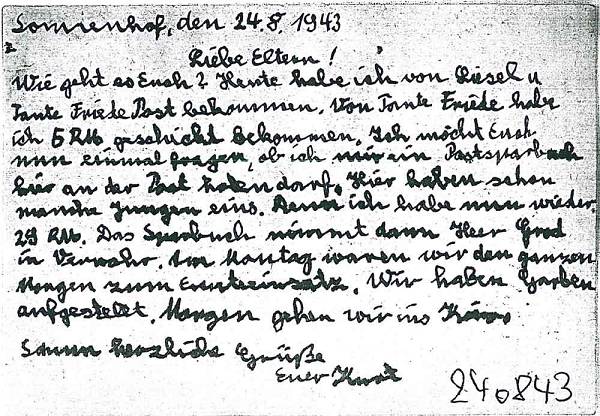 Sonnenhof, den 24.8.1943
Liebe Eltern!
Wie geht es Euch? Heute habe ich von Liesel u
Tante Friede Post bekommen. Von Tante Friede habe
ich 5 RM geschickt bekommen. Ich möcht Euch
nun einmal fragen, ob ich mir ein Postsparbuch
hier an der Post holen darf. Hier haben schon
manche Jungen eins. Denn ich habe nun wieder
29 RM. Das Sparbuch nimmt dann Herr
in Verwahr. Am Montag waren wir den ganzen
Morgen zum Ernteeinsatz. Wir haben Garben
aufgestellt. Morgen gehen wir ins Kino
herzliche Grüße
Euer Kurt
240843